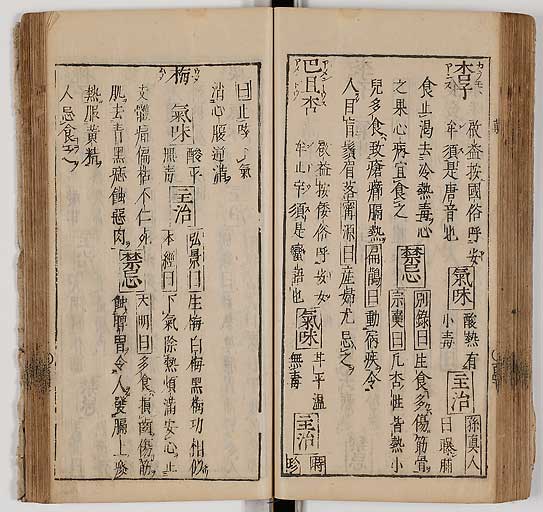 杏子 カラモヽ アンズ
啟益按國俗呼安
牟須是唐音也
氣味 酸熱有
小毒
主治 孫真人
曰曝脯
食止渴去冷熱毒心
之果心病宜食之
禁忌 別錄曰生食多傷筋骨
宗奭曰凡杏性皆熱小
兒多食致瘡癰膈熱扁鵲曰動宿疾令
人目盲鬚眉落甯源曰産婦尤忌之
巴旦杏
啟益按倭俗呼安女
牟止宇須是蠻語也
氣味 甘平温
無毒
主治 時
珍
曰止咳下氣
消心腹逆滿
梅
氣味 酸平
無毒
主治 弘景曰生梅白梅黑梅功相似
本經曰下氣除熱煩滿安心止
支體痛偏枯不仁死
肌去青黑痣蝕惡肉
禁忌 大明曰多食損齒傷筋
蝕脾胃令人發膈上痰
熱服黄精
人忌食之